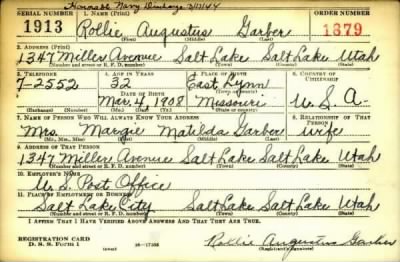 Honorable Navy Discharge 3/17/44
SERIAL NUMBER 1. NAME (Print) ORDER NUMBER
1913 Rollie Augustus Garber 1879
2. ADDRESS (Print)
1347 Miller Avenue Salt Lake Salt Lake Utah
(Number and street or R. F. D. number) (Town) (County) (State)
3. TELEPHONE 4. AGE IN YEARS 5. PLACE OF BIRTH 6. COUNTRY OF CITIZENSHIP
7-2552 32 East Lynn
DATE OF BIRTH (Town or county)
Mar. 4, 1908 Missouri U. S. A.
(Exchange) (Number) (Mo.) (Day) (Yr.) (State or country)
7. NAME OF PERSON WHO WILL ALWAYS KNOW YOUR ADDRESS 8. RELATIONSHIP OF THAT PERSON
Mrs. Margie Matilda Garber wife
(Mr., Mrs., Miss) (First) (Middle) (Last)
9. ADDRESS OF THAT PERSON
1347 Miller Avenue Salt Lake Salt Lake Utah
(Number and street or R. F. D. number) (Town) (County) (State)
10. EMPLOYER'S NAME
U. S. Post Office
11. PLACE OF EMPLOYMENT OR BUSINESS
Salt Lake City Salt Lake Salt Lake Utah
(Number and street or R. F. D. number) (Town) (County) (State)
I AFFIRM THAT I HAVE VERIFIED ABOVE ANSWERS AND THAT THEY ARE TRUE.
REGISTRATION CARD
D. S. S. FORM 1 (over) Rollie Augustus Garber
(Registrant's signature)